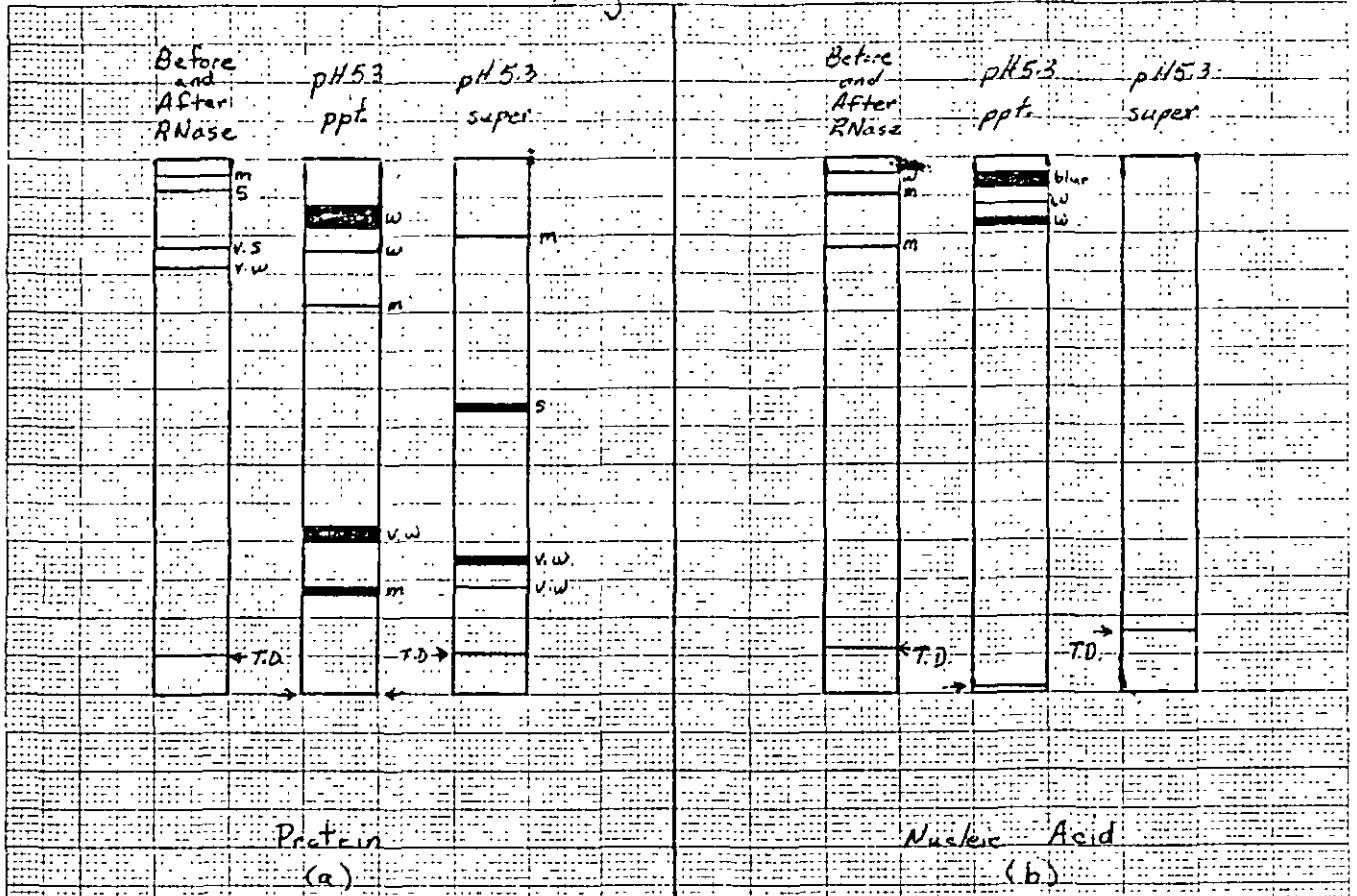 Before
and
After
RNase
pH 5.3
ppt.
pH 5.3
super
m
s
v.s
v.w
T.D.
w
w
m
v.w
m
m
s
v.w.
v.w
T.D
Protein
(a)
Before
and
After
RNase
pH 5.3
ppt.
pH 5.3
super
w
m
m
T.D.
blue
w
w
T.D.
Nucleic Acid
(b)